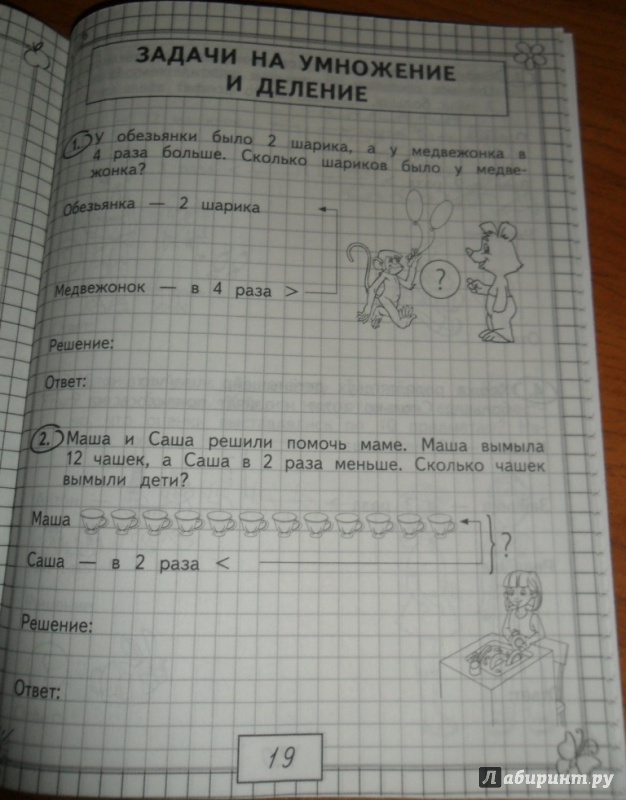 ЗАДАЧИ НА УМНОЖЕНИЕ
И ДЕЛЕНИЕ
1. У обезьянки было 2 шарика, а у медвежонка в
4 раза больше. Сколько шариков было у медве-
жонка?
Обезьянка — 2 шарика
?
Медвежонок — в 4 раза >
Решение:
Ответ:
2. Маша и Саша решили помочь маме. Маша вымыла
12 чашек, а Саша в 2 раза меньше. Сколько чашек
вымыли дети?
Маша
?
Саша — в 2 раза <
Решение:
Ответ:
19
Лабиринт.ру